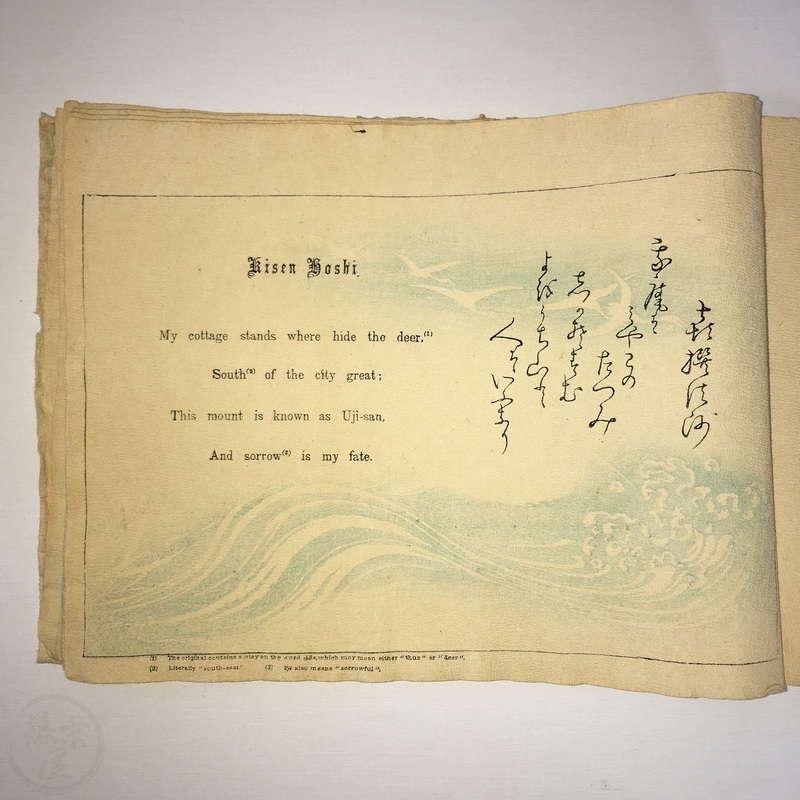 Kisen Hoshi.
My cottage stands where hide the deer,(1)
South(2) of the city great;
This mount is known as Uji-san,
And sorrow(3) is my fate.
喜撰法師
我庵は
みやこの
たつみ
志かそすむ
よをうち山と
人はいふなり
(1) The original contains a play on the word which may mean either "thus" or "deer".
(2) Literally "south-east". (3) Uji also means "sorrowful".
幕末屋